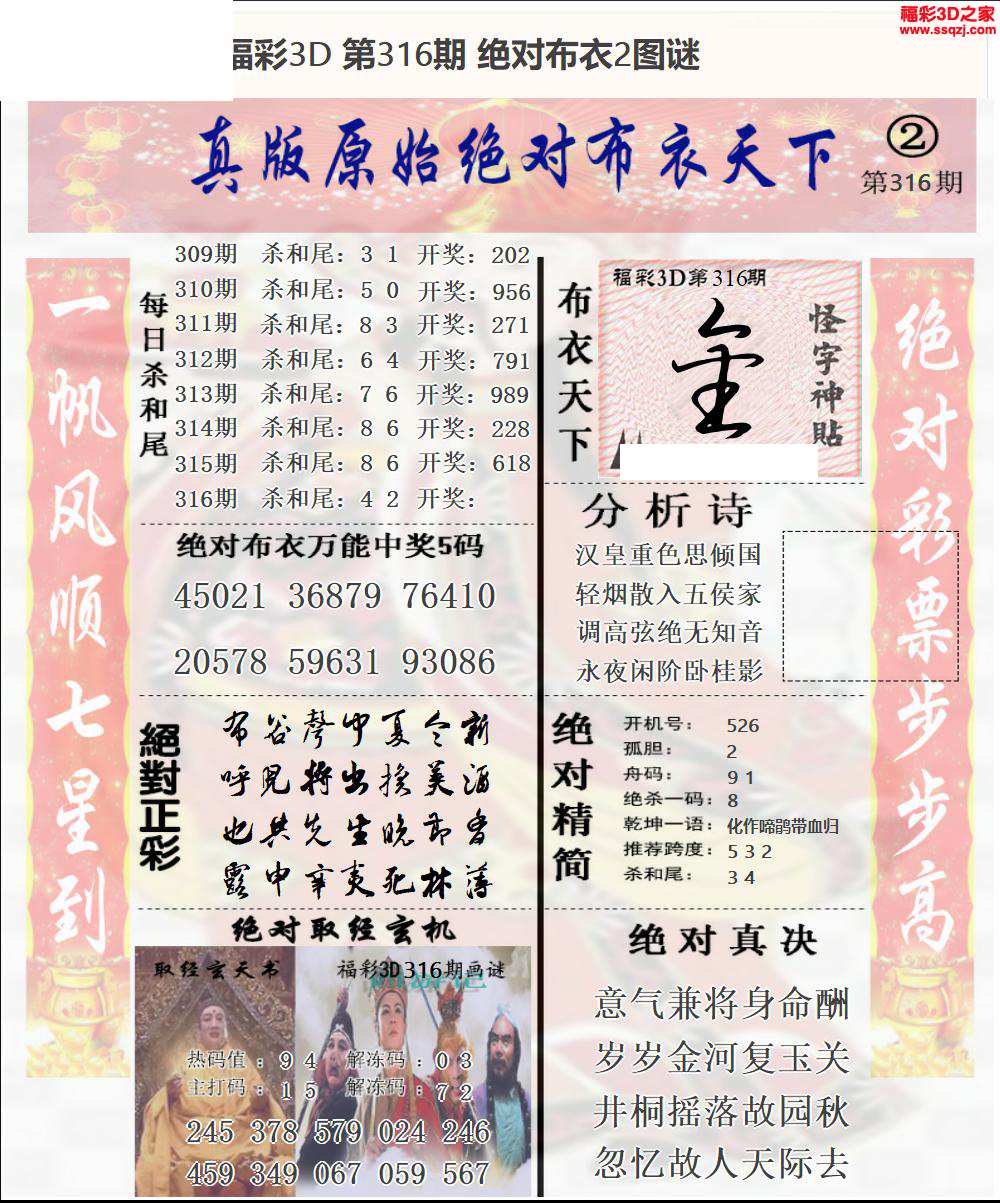 福彩3D之家
www.ssqzj.com
福彩3D 第316期 绝对布衣2图谜
真版原始绝对布衣天下
②
第316期
一帆风顺七星到
每日杀和尾
309期 杀和尾：3 1 开奖：202
310期 杀和尾：5 0 开奖：956
311期 杀和尾：8 3 开奖：271
312期 杀和尾：6 4 开奖：791
313期 杀和尾：7 6 开奖：989
314期 杀和尾：8 6 开奖：228
315期 杀和尾：8 6 开奖：618
316期 杀和尾：4 2 开奖：
绝对布衣万能中奖5码
45021 36879 76410
20578 59631 93086
絕對正彩
布谷聲中夏令新
呼児将出换美酒
也共先生晚节香
露申辛夷死林薄
绝对取经玄机
取经玄天书
福彩3D316期画谜
热码值：9 4 解冻码：0 3
主打码：1 5 解冻码：7 2
245 378 579 024 246
459 349 067 059 567
布衣天下
福彩3D第316期
怪字神贴
分析诗
汉皇重色思倾国
轻烟散入五侯家
调高弦绝无知音
永夜闲阶卧桂影
绝对精简
开机号： 526
孤胆： 2
舟码： 9 1
绝杀一码： 8
乾坤一语： 化作啼鹃带血归
推荐跨度： 5 3 2
杀和尾： 3 4
绝对真决
意气兼将身命酬
岁岁金河复玉关
井桐摇落故园秋
忽忆故人天际去
绝对彩票步步高